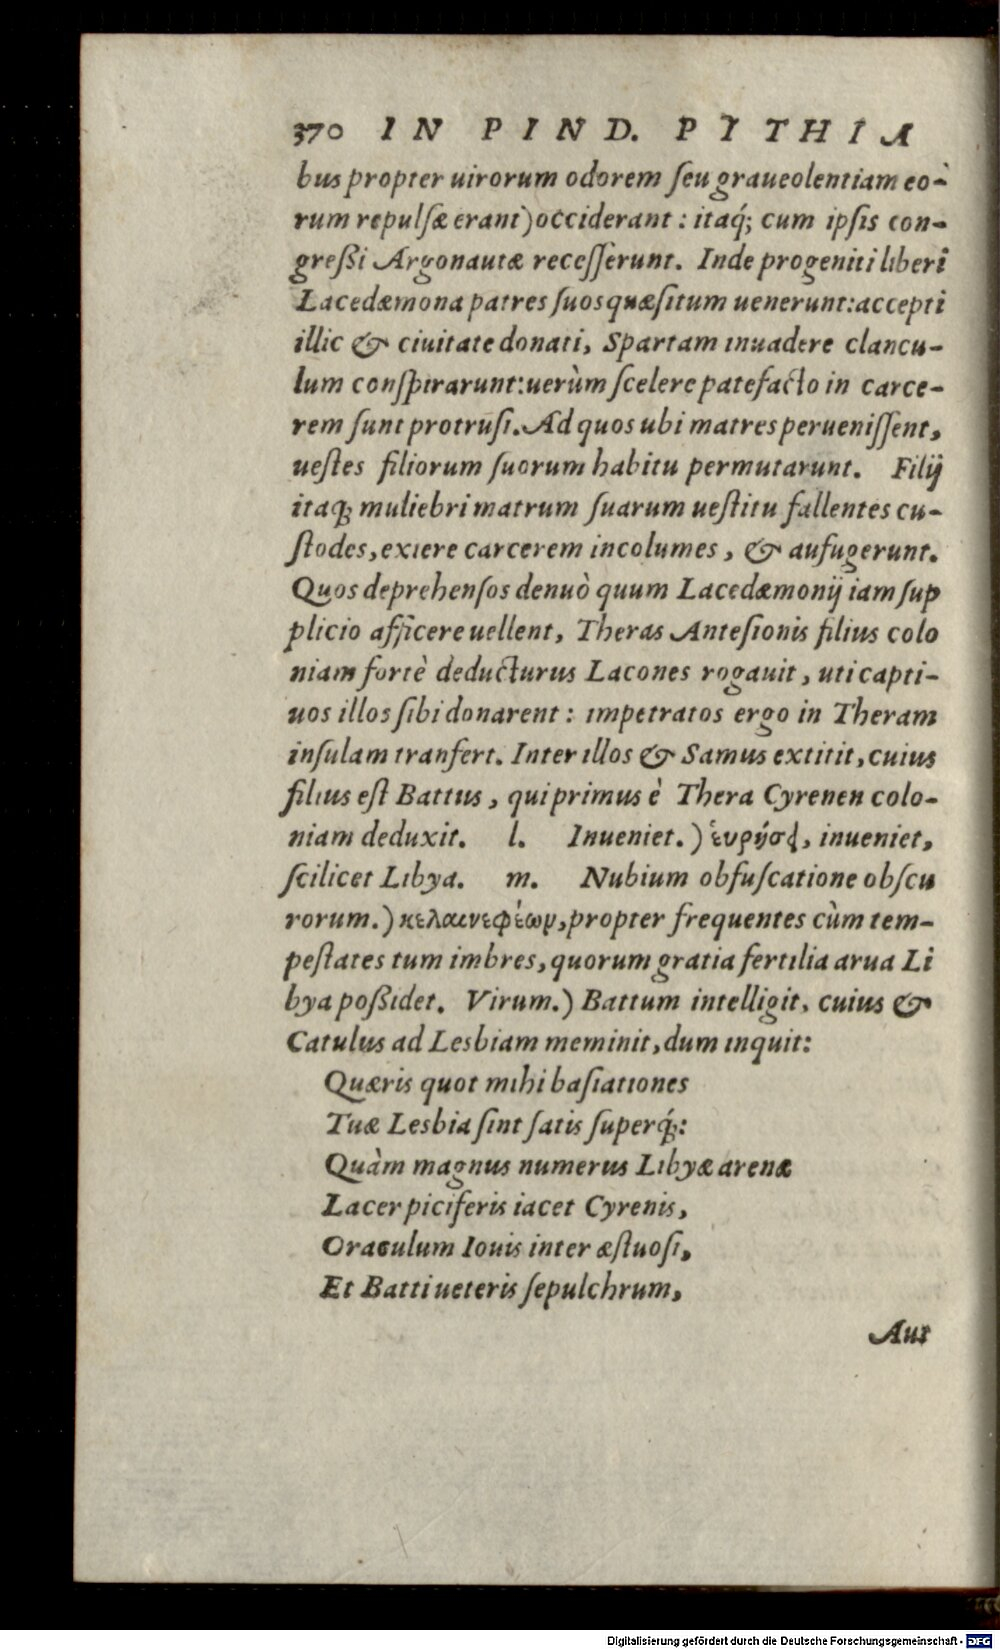 370 IN PIND. PYTHIA
bus propter uirorum odorem ſeu graueolentiam eo-
rum repulſæ erant) occiderant : itaq́; cum ipſis con-
greßi Argonautæ receſſerunt. Inde progeniti liberi
Lacedæmona patres ſuos quæſitum uenerunt: accepti
illic & ciuitate donati, Spartam inuadere clancu-
lum conſpirarunt: uerùm ſcelere patefacto in carce-
rem ſunt protruſi. Ad quos ubi matres perueniſſent,
ueſtes filiorum ſuorum habitu permutarunt. Filij
itaq; muliebri matrum ſuarum ueſtitu fallentes cu-
ſtodes, exiere carcerem incolumes, & aufugerunt.
Quos deprehenſos denuò quum Lacedæmonij iam ſup
plicio afficere uellent, Theras Anteſionis filius colo
niam fortè deducturus Lacones rogauit, uti capti-
uos illos ſibi donarent : impetratos ergo in Theram
inſulam tranfert. Inter illos & Samus extitit, cuius
filius eſt Battus, qui primus è Thera Cyrenen colo-
niam deduxit. l. Inueniet.) ἑυρήσᾳ, inueniet,
ſcilicet Libya. m. Nubium obfuſcatione obſcu
rorum.) κελαινεφέων, propter frequentes cùm tem-
peſtates tum imbres, quorum gratia fertilia arua Li
bya poßidet. Virum.) Battum intelligit, cuius &
Catulus ad Lesbiam meminit, dum inquit:
Quæris quot mihi baſiationes
Tuæ Lesbia ſint ſatis ſuperq́;:
Quàm magnus numerus Libyæ arenæ
Lacer piciferis iacet Cyrenis,
Oraculum Iouis inter æſtuoſi,
Et Batti ueteris ſepulchrum,
Aut
Digitalisierung gefördert durch die Deutsche Forschungsgemeinschaft - DFG